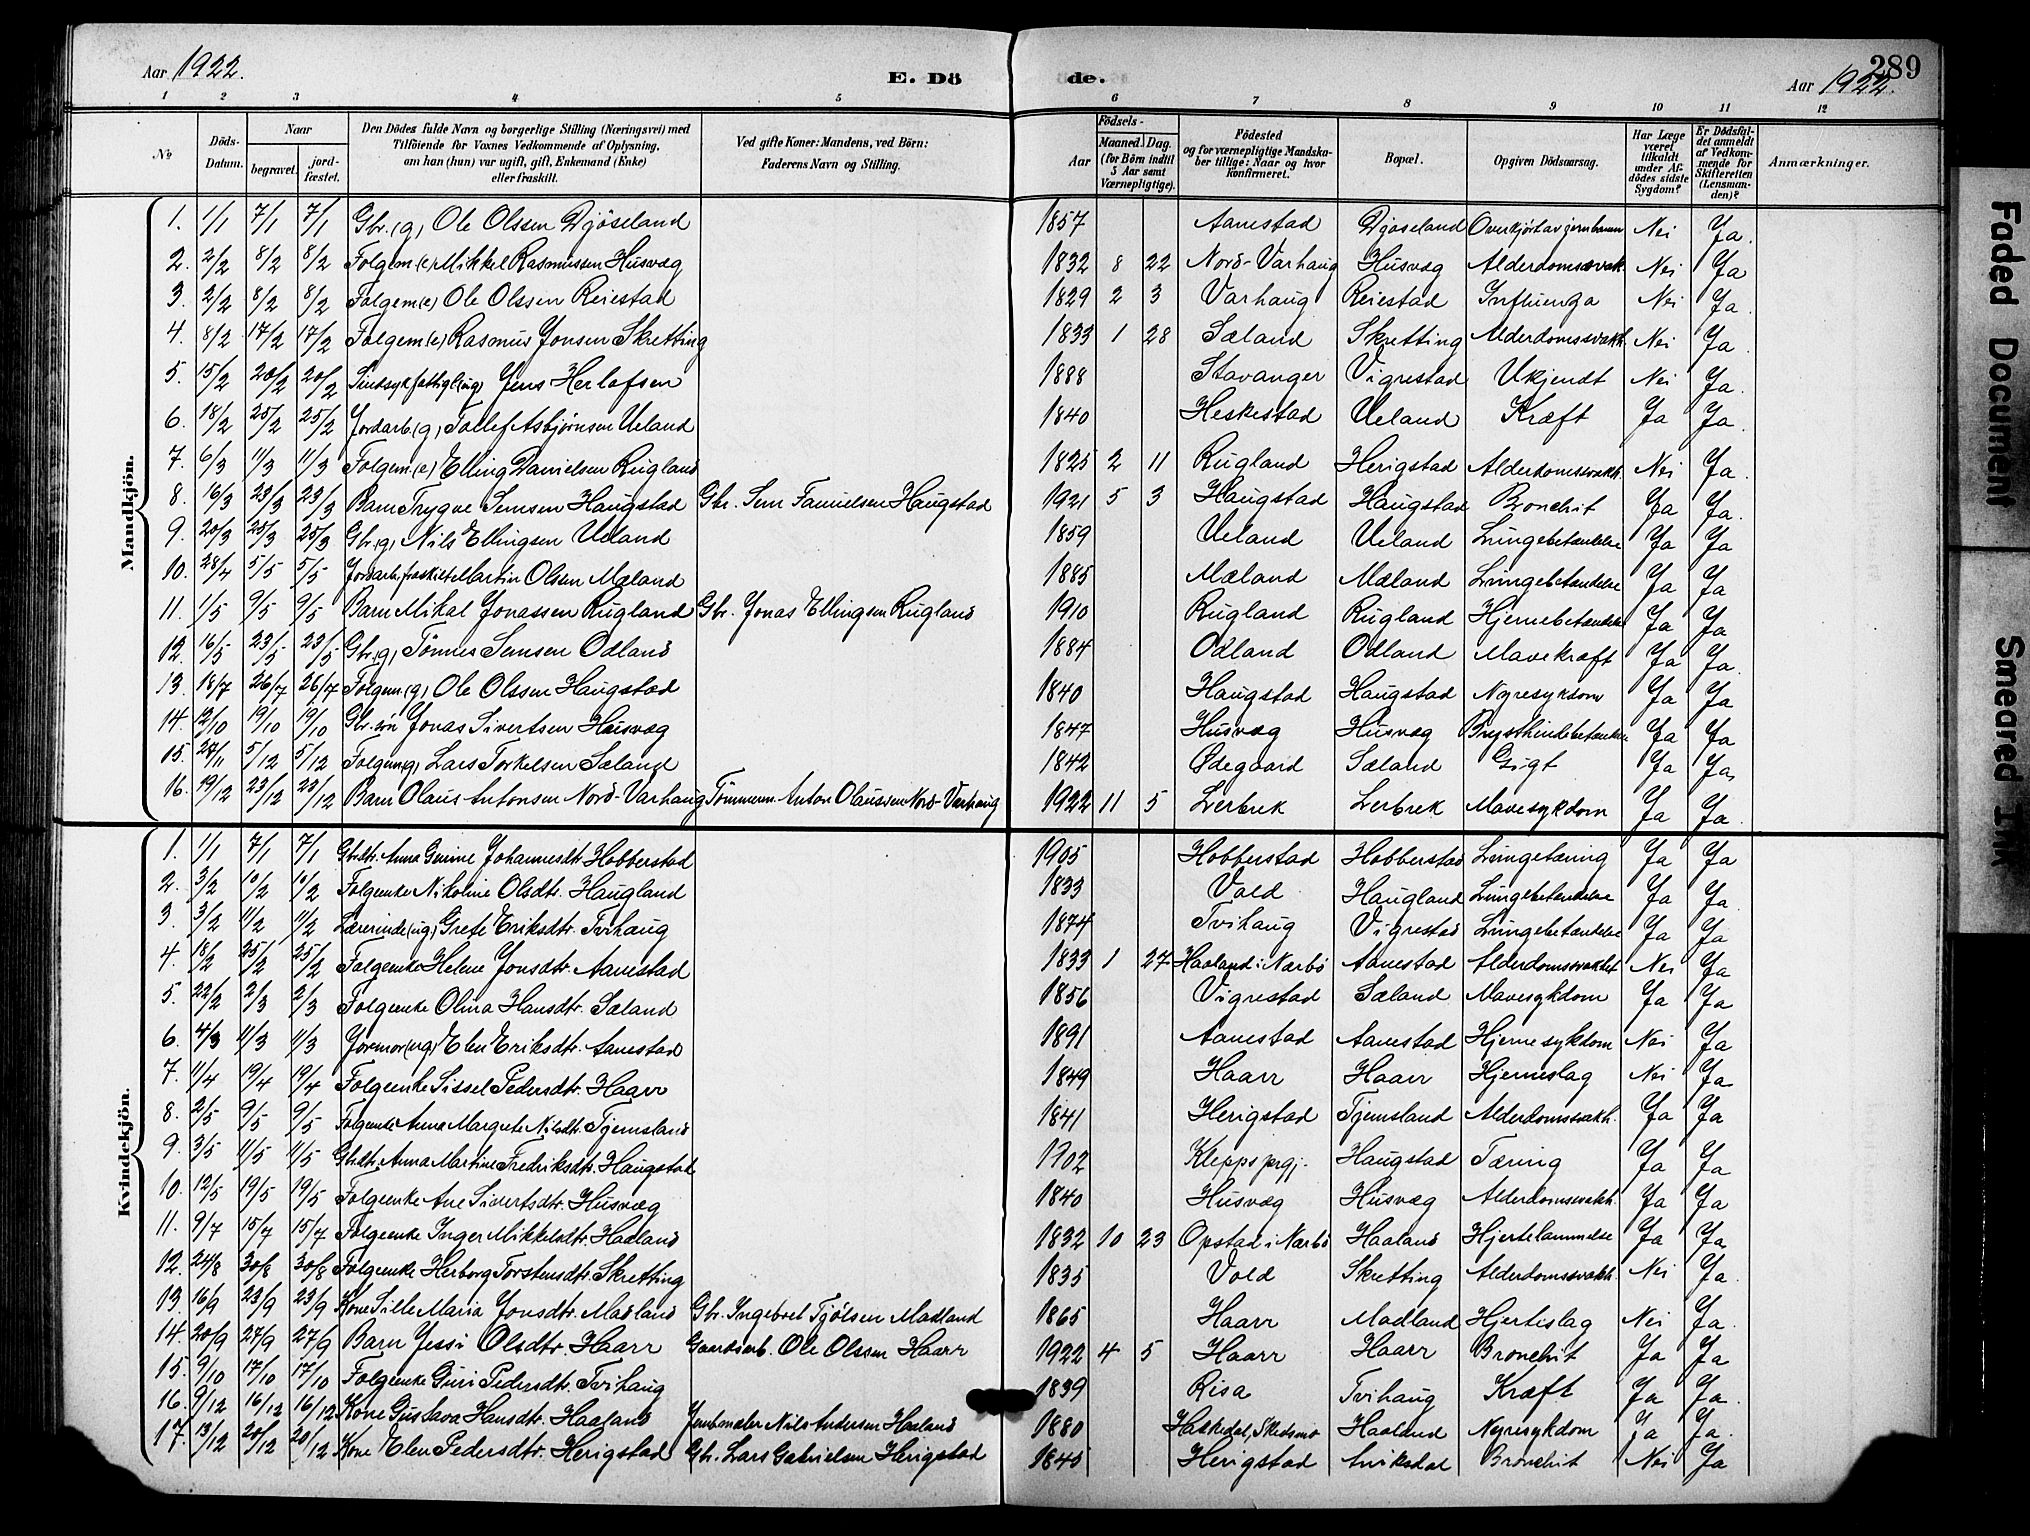 Aar 1922.
E. Dö
de.
Aar 1922.
289
1 2 3 4 5 6 7 8 9 10 11 12
№
Döds-Datum.
Naar
begravet.
jordfæstet.
Den Dödes fulde Navn og borgerlige Stilling (Næringsvei) med Tilföiende for Voxnes Vedkommende af Oplysning, om han (hun) var ugift, gift, Enkemand (Enke) eller fraskilt.
Ved gifte Koner: Mandens, ved Börn: Faderens Navn og Stilling.
Födsels-
Aar
Maaned. Dag.
(for Börn indtil 5 Aar samt Værnepligtige).
Födested og for værnepligtige Mandskaber tillige: Naar og hvor konfirmeret.
Bopæl.
Opgiven Dödsaarsag.
Har Læge været tilkaldt under Afdödes sidste Sygdom?
Er Dödsfaldet anmeldt af Vedkommende for Skifteretten (Lensmanden)?
Anmærkninger.
Mandkjön.
1. 1/1 7/1 7/1 Gbr. (g) Ole Olssen Djöseland 1857 Aanestad Djöseland Overkjørt av jernbanen Nei Ja.
2. 2/2 8/2 8/2 Folgem (e) Mikkel Rasmussen Husvæg 1832 8 22 Nord-Varhaug Husvæg Alderdomssvak. Nei Ja
3. 2/2 8/2 8/2 Folgem (e) Ole Olssen Reiestad 1829 2 3 Varhaug Reiestad Influenza Nei Ja.
4. 8/2 17/2 17/2 Folgem (e) Rasmus Jonsen Skretting 1833 1 28 Sæland Skretting Alderdomssvakh. Nei Ja.
5. 15/2 20/2 20/2 Sindsyk fattigl. (ug) Jens Herlofsen 1888 Stavanger Vigrestad Ukjendt Nei Ja.
6. 18/2 25/2 25/2 Jordarb. (g) Tollef Asbjørnsen Ueland 1840 Heskestad Ueland Kræft Ja Ja.
7. 6/3 11/3 11/3 Folgem (e) Elling Danielsen Rugland 1825 2 11 Rugland Herigstad Alderdomssvakh. Nei Ja.
8. 16/3 23/3 23/3 Barn Trygve Semsen Haugstad Gbr. Sem Haugstad 1921 5 3 Haugstad Haugstad Bronchit Ja Ja.
9. 20/3 25/3 25/3 Gbr. (g) Nils Ellingsen Ueland 1859 Ueland Ueland Lungebetændelse Ja Ja
10. 28/4 5/5 5/5 Jordarb. fraskilt Martin Olsen Mæland 1885 Mæland Mæland Lungebetændelse Ja Ja
11. 1/5 9/5 9/5 Barn Mikal Jonassen Rugland Gbr. Jonas Ellingsen Rugland 1910 Rugland Rugland Hjernebetændelse Ja Ja
12. 16/5 23/5 23/5 Gbr. (g) Tönnes Semsen Odland 1884 Odland Odland Mavekræft Ja Ja.
13. 18/7 26/7 26/7 Folgem. (g) Ole Olssen Haugstad 1840 Haugstad Haugstad Nyresykdom Ja Ja
14. 12/10 19/10 19/10 Gbr. sön Jonas Sivertsen Husvæg 1847 Husvæg Husvæg Brysthindebetændelse Ja Ja
15. 27/11 5/12 5/12 Folgem (g) Lars Torkelsen Sæland 1842 Ødegaard Sæland Gigt Ja Ja,
16. 19/12 23/12 23/12 Barn Olaus Antonsen Nord-Varhaug Tömmerm. Anton Olaussen Nord-Varhaug 1922 11 5 Lerbrek Lerbrek Mavesykdom Ja Ja.
Kvindekjön.
1. 1/1 7/1 7/1 Gbrdtr. Anna Gurine Johannesdtr. Hobberstad 1905 Hobberstad Hobberstad Lungetæring Ja Ja
2. 3/2 10/2 10/2 Folgeenke Nikoline Olsdtr. Haugland 1833 Vold Haugland Lungebetændelse Ja Ja.
3. 3/2 11/2 11/2 Lærerinde (ug.) Grete Eriksdtr. Tvihaug 1874 Tvihaug Vigrestad Lungebetændelse Ja Ja
4. 18/2 25/2 25/2 Folgeenke Helene Jonsdtr. Aanestad 1833 1 27 Haaland i Nærbö Aanestad Alderdomssvakhet Nei Ja
5. 22/2 2/3 2/3 Folgeenke Olina Hansdtr. Sæland 1856 Vigrestad Sæland Mavesykdom Ja Ja
6. 4/3 11/3 11/3 Jormor (ug) Elen Eriksdtr. Aanestad 1891 Aanestad Aanestad Hjernesykdom Nei Ja
7. 11/4 19/4 19/4 Folgeenke Sissel Pedersdtr. Haarr 1849 Haarr Haarr Hjerneslag Nei Ja.
8. 2/5 9/5 9/5 Folgeenke Anna Margrete Nilsdtr. Tjemsland 1841 Herigstad Tjemsland Alderdomssvakh. Ja Ja
9. 3/5 11/5 11/5 Gbrdtr. Anna Martine Fredriksdtr. Haugstad 1902 Klepps prgj. Haugstad Tæring Ja Ja
10. 12/5 19/5 19/5 Folgeenke Ane Sivertsdtr. Husvæg 1840 Husvæg Husvæg Alderdomssvakh. Ja Ja
11. 9/7 15/7 15/7 Folgeenke Inger Mikkelsdtr. Haaland 1832 10 23 Opstad i Nærbö Haaland Hjertelammelse Ja Ja
12. 24/8 30/8 30/8 Folgeenke Herborg Torstensdtr. Skretting 1835 Vold Skretting Alderdomssvakh. Nei Ja.
13. 16/9 23/9 23/9 Kone Sille Maria Jonsdtr. Madland Gbr. Ingebret Tjölsen Madland 1865 Haarr Madland Hjerteslag Nei Ja.
14. 20/9 27/9 27/9 Barn Jessi Olsdtr. Haarr Gaardsarb. Ole Olssen Haarr 1922 4 5 Haarr Haarr Bronchit Ja Ja
15. 9/10 17/10 17/10 Folgeenke Guri Pedersdtr. Tvihaug 1839 Risa Tvihaug Kræft Ja Ja
16. 9/12 16/12 16/12 Kone Gustava Hansdtr. Haaland Nils Andersen Haaland 1880 Haskedal, Skedsmo Haaland Nyresykdom Ja Ja.
17. 13/12 20/12 20/12 Kone Elen Pedersdtr. Herigstad Gbr. Lars Gabrielsen Herigstad 1845 Herigstad Aniksdal Bronchit Nei Ja
Faded Document
Smeared Ink